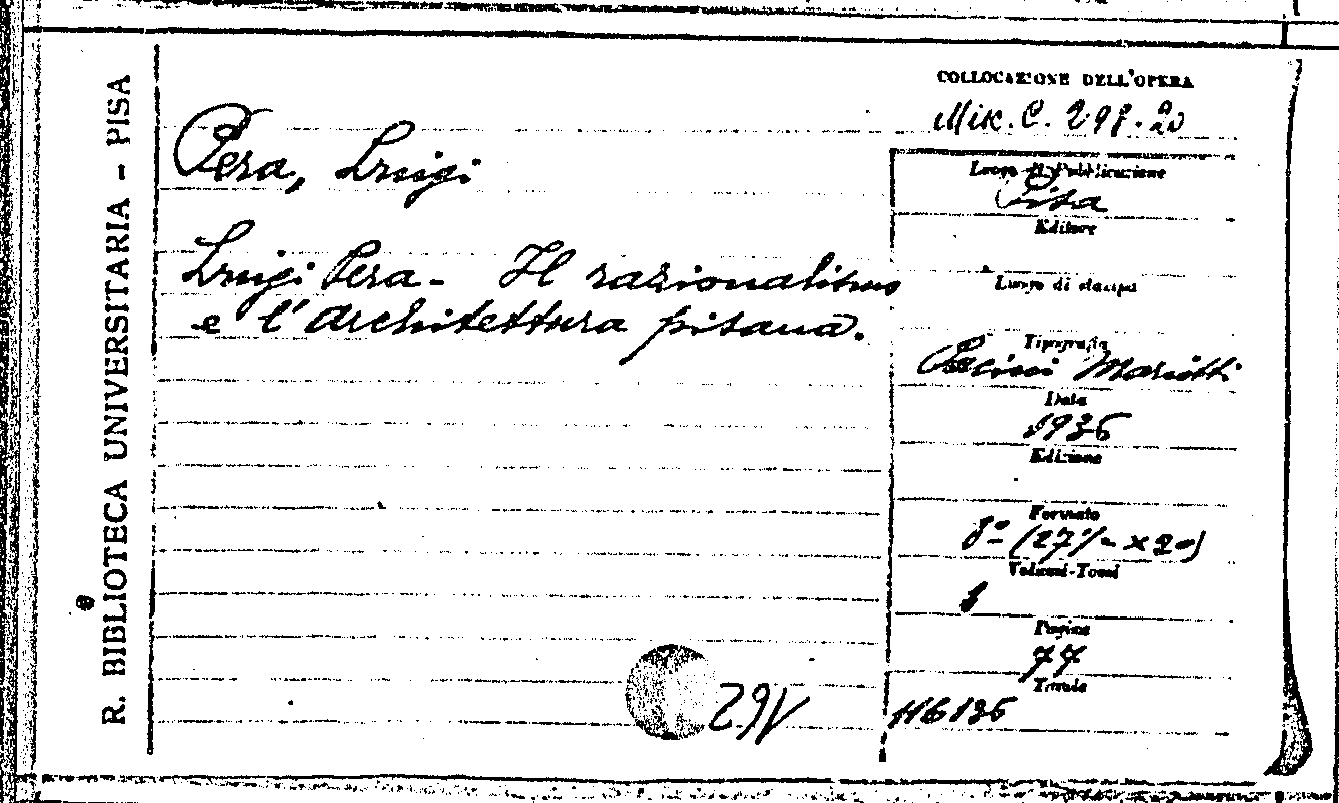 R. BIBLIOTECA UNIVERSITARIA - PISA
Pera, Luigi
Luigi Pera - Il razionalismo
e l'architettura pisana.
COLLOCAZIONE DELL'OPERA
Misc. C. 298.20
Luogo di Pubblicazione
Pisa
Editore
Luogo di stampa
Tipografia
Pacini Mariotti
Data
1936
Edizione
Formato
8º (27½ x 20)
Volumi-Tomi
1
Pagine
77
Totale
116136